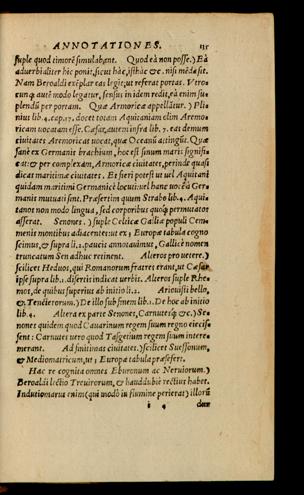 ANNOTATIONES. 135
suple quod timorē simulabant. Quod eà non posse.) Eà
aduerbialiter hic ponit, sicut hàc, isthàc &c. nisi mēda sit.
Nam Beroaldi exēplar eas legit; ut referat portas. Vtro=
cunq; autē modo legatur, sensus in idem redit, eà enim su=
plendū per portam. Quæ Armoricæ appellātur. ) Pli
nius lib. 4. cap. 17. docet totam Aquitaniam olim Aremo=
ricam uocatam esse. Cæsar, autem infra lib. 7. eat demum
ciuitates Aremoricas uocat, quæ Oceanū actingūt. Quæ
sanè ex Germanis brathien, hoc est sinum maris signifi=
cat: & per complexam, Armoricæ ciuitates, perinde quasi
dicat maritimæ ciuitates. Et fieri potest ut uel Aquitani
quidam maritimi Germanicè locuti: uel hanc uocem Ger=
manis mutuati sint. Præsertim quum Strabo lib. 4. Aqui=
tanos non modo lingua, sed corporibus quoq; permutatos
asserat. Senones .) suple Celticæ Galliæ populi Cem=
menis montibus adiacentes: ut ex 3 Europæ tabula cogno
scimus, & supra li. 2. paucis annotauimus, Gallicè nomen
truncatum Sen adhuc retinent. Alteros pro uetere.)
scilicet Heduos, qui Romanorum fratres erant, ut Cæsar
ipse supra lib. 1. disertis indicat uerbis. Alteros suple Rhe=
mos, de quibus superius ab initio li. 2. Ariouisti bello,
& Tencterorum.) De illo sub finem lib. 1. De hoc ab initio
lib. 4. Altera ex parte Senones, Carnutesq; &c.) Se=
nones quidem quod Cauarinum regem suum regno eiecis
sent: Carnutes uero quod Tasgetium regem suum intere=
merant. Ad finitimas ciuitates.) scilicet Suessonum,
& Mediomatricum, ut 3 Europæ tabula præsefert.
Hac re cognita omnes Eburonum ac Neruiorum.)
Beroaldi lectio Treuirorum, & haud dubiè rectius habet.
Indutiomarus enim (qui modò in flumine perierat) illorū
i 4 dux